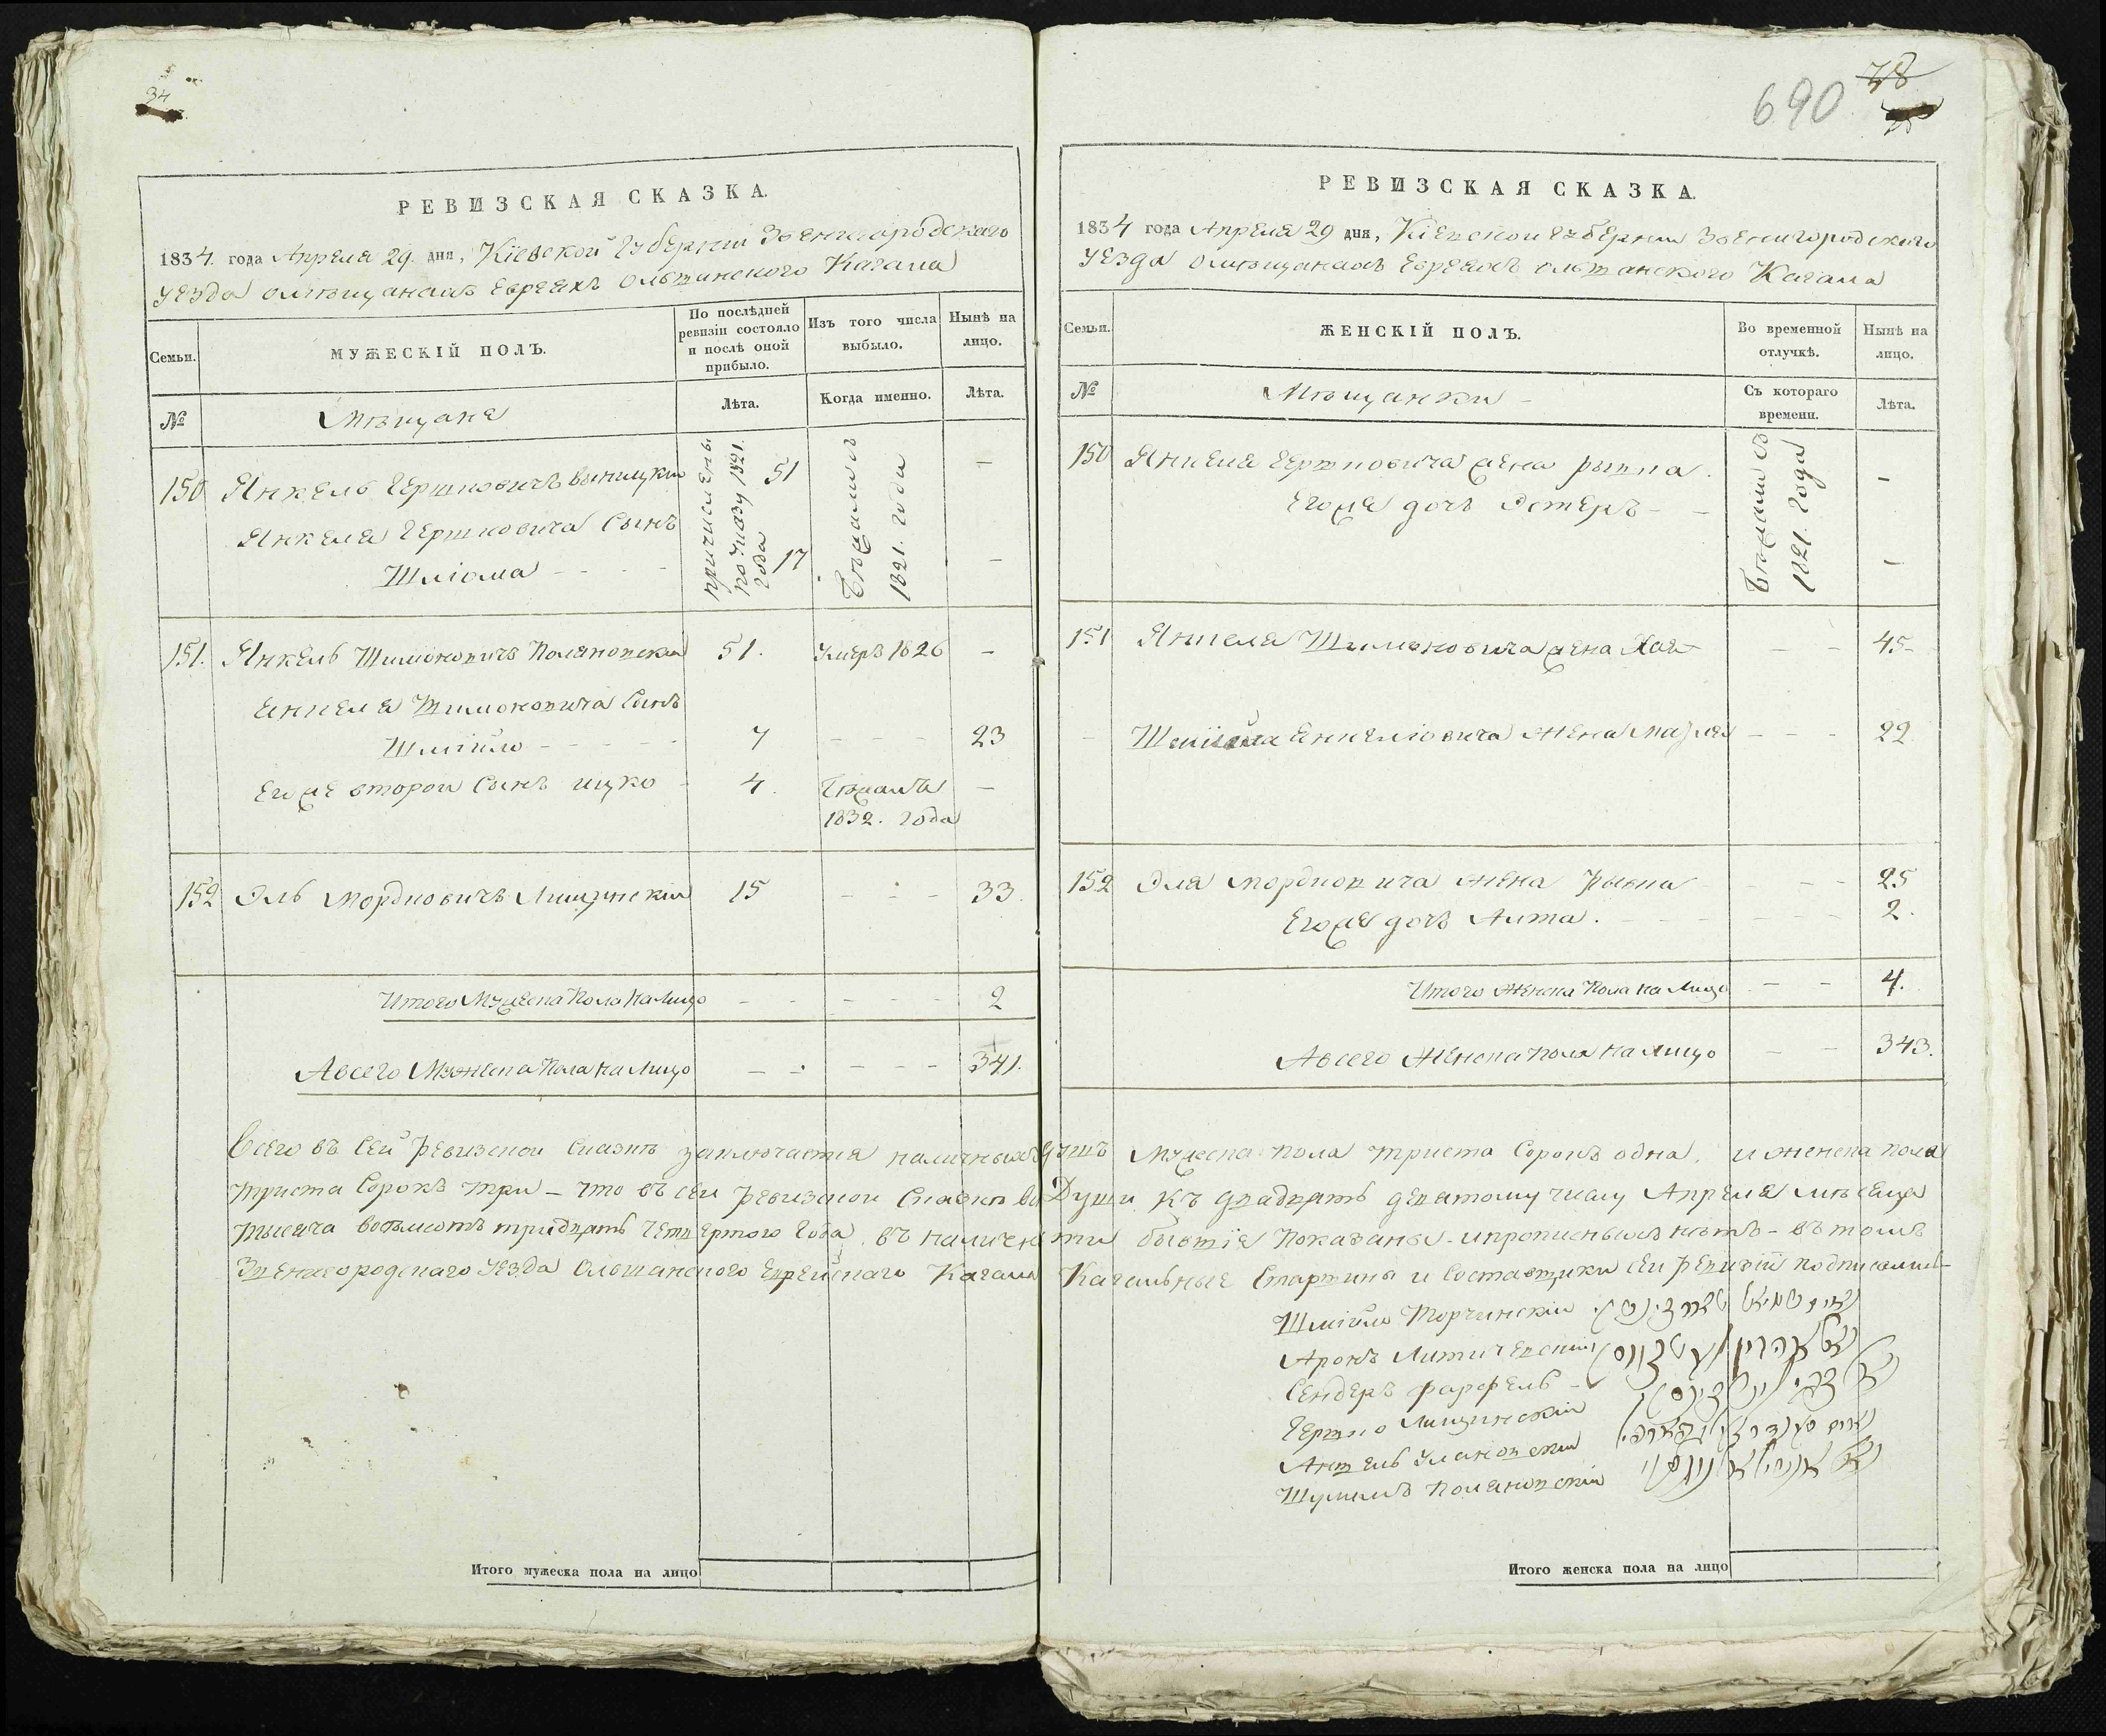 34
РЕВИЗСКАЯ СКАЗКА.
1834. года Апреля 29. дня, Кіевской Губерніи Звенигородского
уезда омѣщанахъ Евреяхъ Ольшанского Кагала
Семьи.
МУЖЕСКІЙ ПОЛЪ.
По послѣдней ревизіи состояло и послѣ оной прибыло.
Изъ того числа выбыло.
Нынѣ на лицо.
№
Мѣщане
Лѣта.
Когда именно.
Лѣта.
150 Янкель Гершковичъ Виницкій 51 –
Янкеля Гершковича Сынъ
Шліома - - - - 17 –
причислены
по указу 1821.
года
Бѣжали въ
1821. году
151. Янкель Шимоновичъ Поляновскій 51. Умеръ 1826 –
Янкеля Шимоновича Сынъ
Шмійло - - - - - 7 - - - 23
Егоже второй Сынъ ицко - 4. Бѣжалъ –
1832. года
152 Эль Мордковичъ Лищинскій 15 - - - 33.
Итого Мужеска Пола На Лицо - - - - - 2
А всего Мужеска Пола На Лицо - - - - - 341.
Всего въ Сей Ревизской Сказкѣ заключается наличныхъ душъ
триста Сорокъ три – что въ сей Ревизской Сказкѣ все Души
тысяча восьмсотъ тридцать четвертого Года. въ наличности
Звенигородскаго уезда Ольшанского Еврейскаго Кагала
Итого мужеска пола на лицо
690 78
РЕВИЗСКАЯ СКАЗКА.
1834 года Апреля 29 дня, Кіевской губерніи Звенигородского
уезда омѣщанахъ Евреяхъ ольшанского Кагала
Семьи.
ЖЕНСКІЙ ПОЛЪ.
Во временной отлучкѣ.
Нынѣ на лицо.
№
Мѣщанки -
Съ котораго времени.
Лѣта.
150 Янкеля Гершковича жена рыпа. -
Егоже дочь Эстеръ - - -
Бѣжали въ
1821. Года
151 Янкеля Шимоновича жена Хая - - 45-
- Шмійла Янкеліовича Жена Маля - - - 22
152 Эля мордковича жена Рывка - - - 25
Егоже дочь Алта. - - - 2.
Итого Женска Пола на Лицо - - 4.
А всего Женска пола на лицо - - 343.
Мужеска пола триста Сорокъ одна. и женска пола
къ двадцать девятому числу Апреля мѣсеца
бытія показаны - и прописныхъ нѣтъ - въ томъ
Кагальные Старшины и Составщики сей ревизіи подписались -
Шмійло Торчинскій
Аронъ
Сендеръ фарфель -
Гершко Лищинскій
Аншель Улановскій
Шулимъ Поляновскій
Итого женска пола на лицо